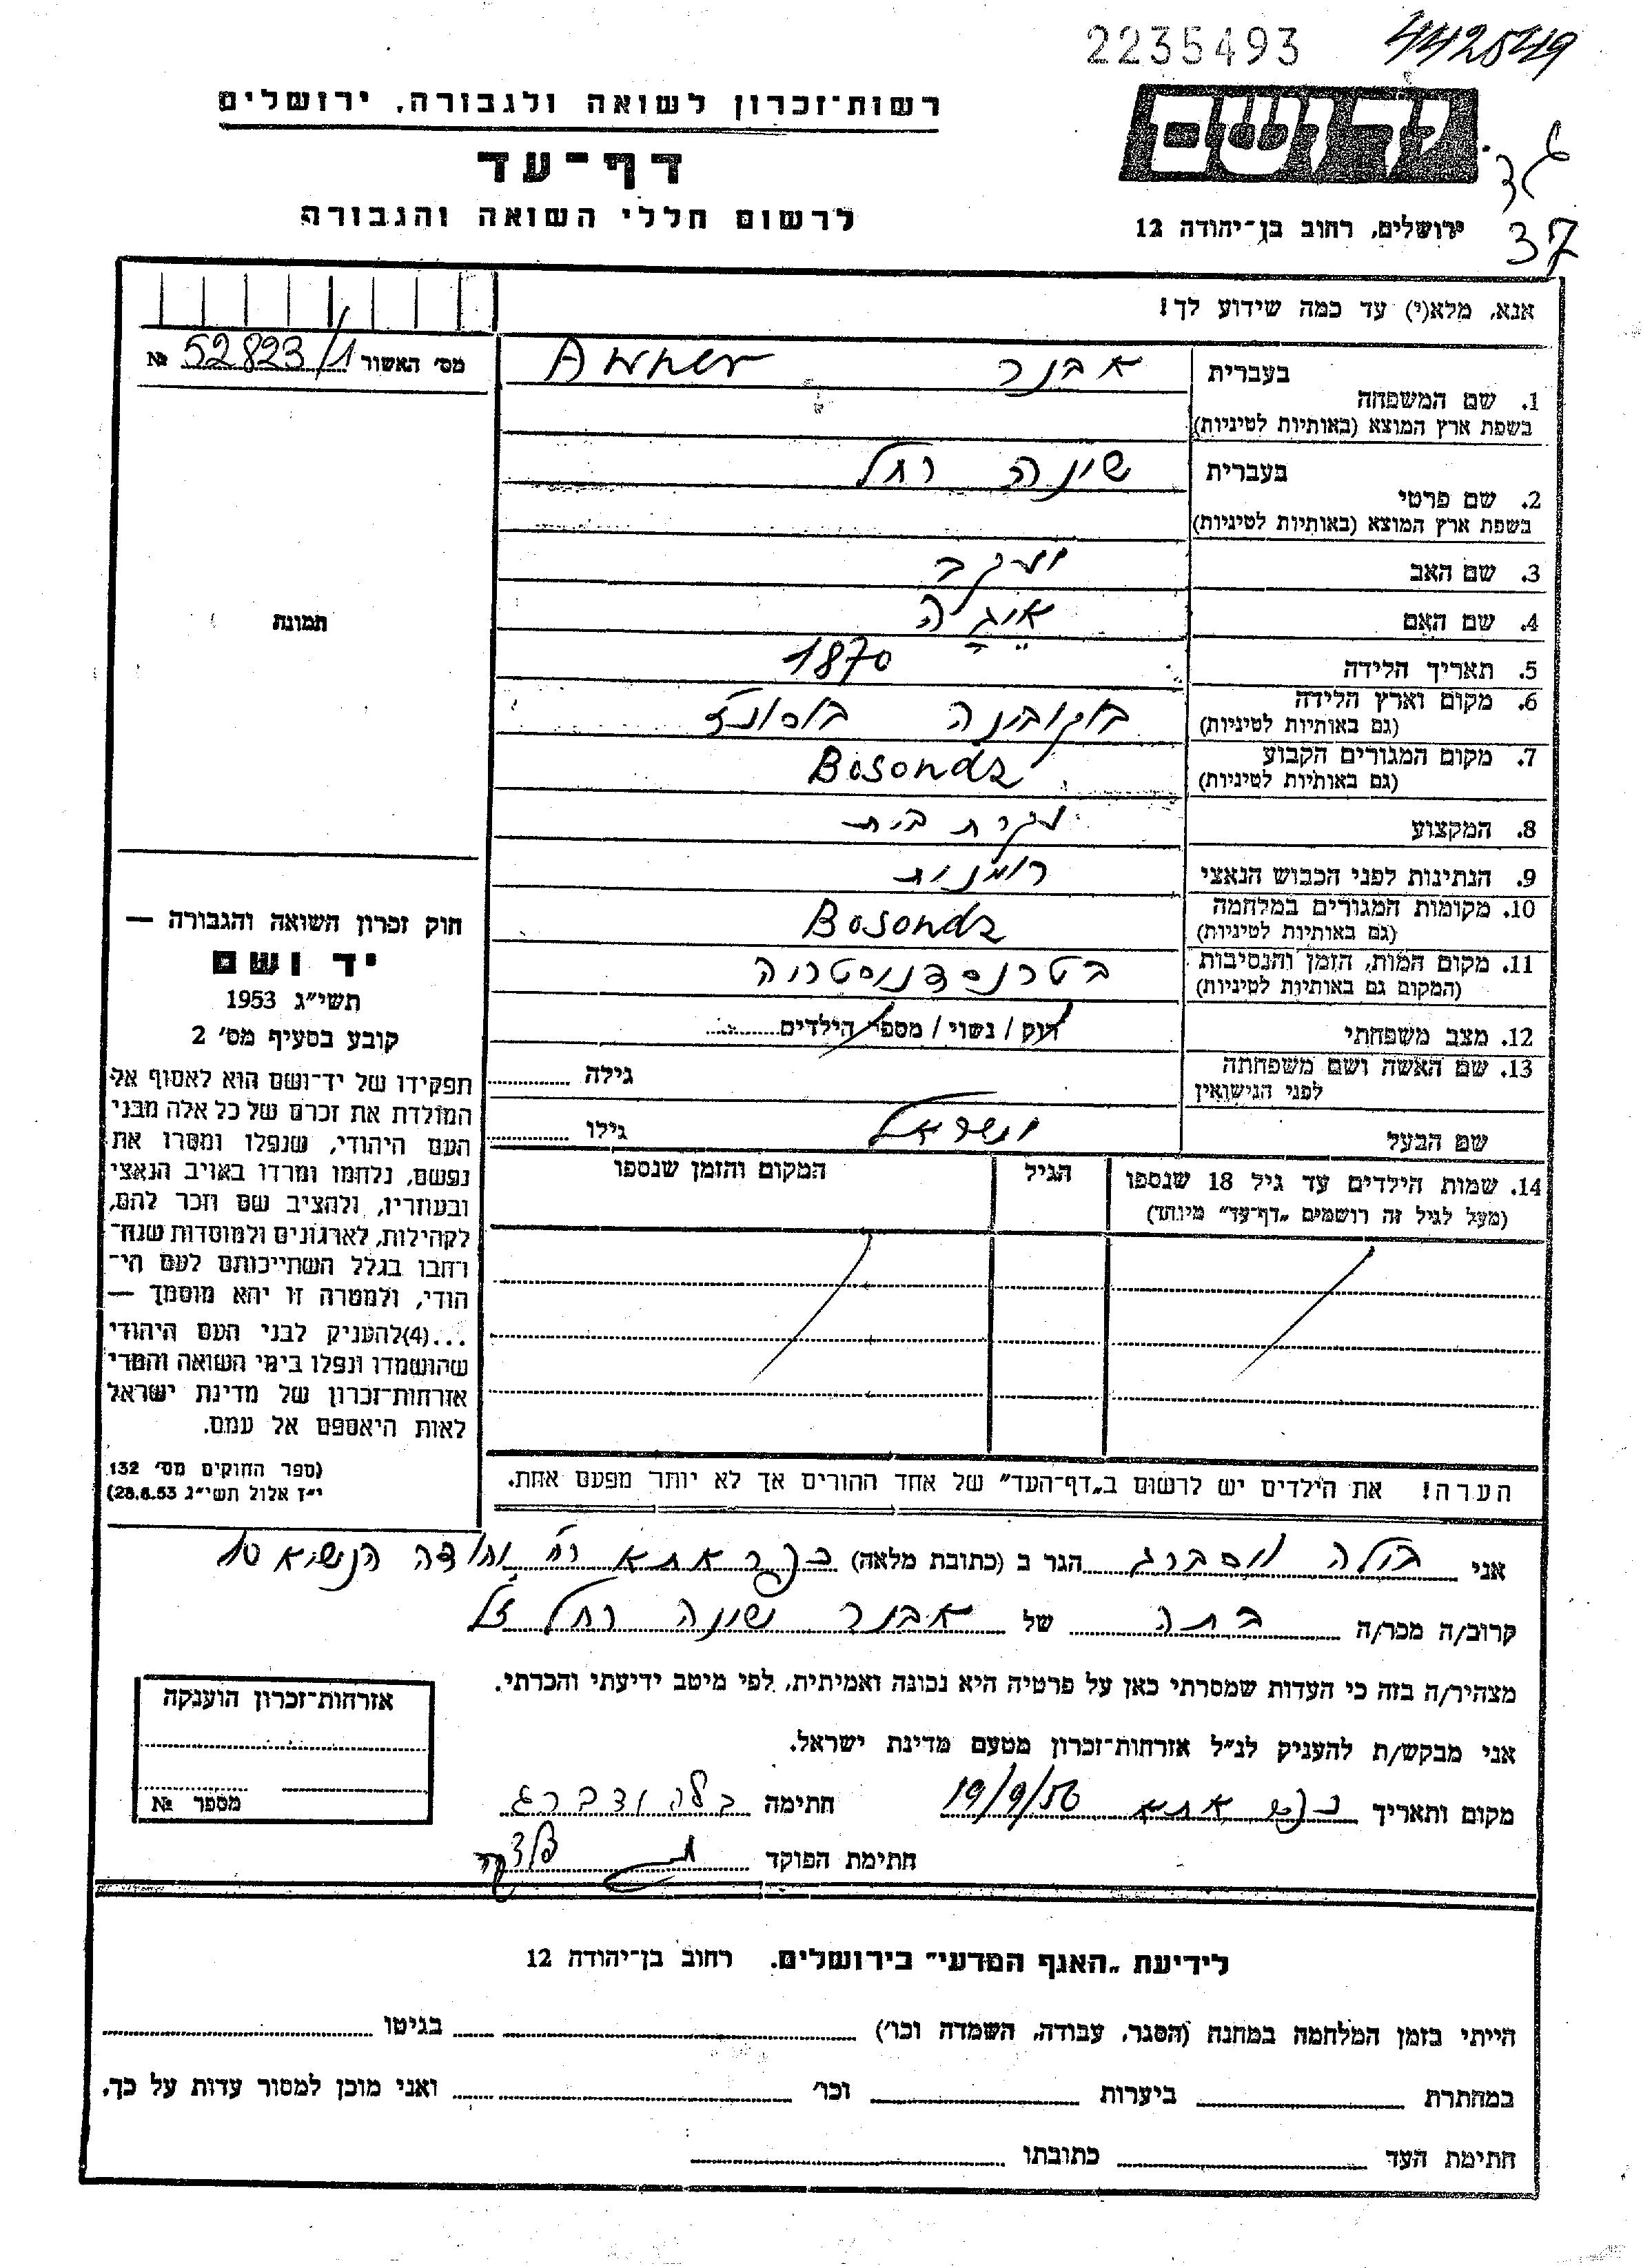 2235493 442549
רשות־זכרון לשואה ולגבורה, ירושלים
ידושם
דף־עד
לרשום חללי השואה והגבורה
ירושלים, רחוב בן־יהודה 12
37
אנא, מלא(י) עד כמה שידוע לך!
מס׳ האשור 52823/1 №
בעברית אבנר Awner
1. שם המשפחה
בשפת ארץ המוצא (באותיות לטיניות)
בעברית שינה רחל
2. שם פרטי
בשפת ארץ המוצא (באותיות לטיניות)
3. שם האב יעקב
4. שם האם
תמונה
5. תאריך הלידה 1870
6. מקום וארץ הלידה בוקובינה
(גם באותיות לטיניות)
7. מקום המגורים הקבוע Bosondz
(גם באותיות לטיניות)
8. המקצוע עקרת בית
9. הנתינות לפני הכבוש הנאצי רומנית
10. מקומות המגורים במלחמה Bosondz
(גם באותיות לטיניות)
11. מקום המות, הזמן והנסיבות בטרנסדניסטריה
(המקום גם באותיות לטיניות)
12. מצב משפחתי רוק / נשוי / מספר הילדים
13. שם האשה ושם משפחתה גילה
לפני הנישואין
שם הבעל ישראל גילו
14. שמות הילדים עד גיל 18 שנספו הגיל המקום והזמן שנספו
(מעל לגיל זה רושמים „דף־עד״ מיוחד)
הערה! את הילדים יש לרשום ב„דף־העד״ של אחד ההורים אך לא יותר מפעם אחת.
חוק זכרון השואה והגבורה —
יד ושם
תשי״ג 1953
קובע בסעיף מס׳ 2
תפקידו של יד־ושם הוא לאסוף אל
המולדת את זכרם של כל אלה מבני
העם היהודי, שנפלו ומסרו את
נפשם, נלחמו ומרדו באויב הנאצי
ובעוזריו, ולהציב שם וזכר להם,
לקהילות, לארגונים ולמוסדות שנח־
רבו בגלל השתייכותם לעם הי־
הודי, ולמטרה זו יהא מוסמך —
...(4)להעניק לבני העם היהודי
שהושמדו ונפלו בימי השואה והמרי
אזרחות־זכרון של מדינת ישראל
לאות היאספם אל עמם.
(ספר החוקים מס׳ 132
י״ז אלול תשי״ג 28.8.53)
אני בילה הגר ב (כתובת מלאה) כפר אתא רח׳ יהודה הנשיא 10
קרוב/ה מכר/ה בתה של אבנר שינה רחל ז״ל
מצהיר/ה בזה כי העדות שמסרתי כאן על פרטיה היא נכונה ואמיתית, לפי מיטב ידיעתי והכרתי.
אני מבקש/ת להעניק לנ״ל אזרחות־זכרון מטעם מדינת ישראל.
מקום ותאריך כפר אתא 19/9/56 חתימה
חתימת הפוקד
אזרחות־זכרון הוענקה
מספר №
לידיעת „האגף המדעי״ בירושלים. רחוב בן־יהודה 12
הייתי בזמן המלחמה במחנה (הסגר, עבודה, השמדה וכו׳) בגיטו
במחתרת ביערות וכו׳ ואני מוכן למסור עדות על כך.
חתימת העד כתובתו